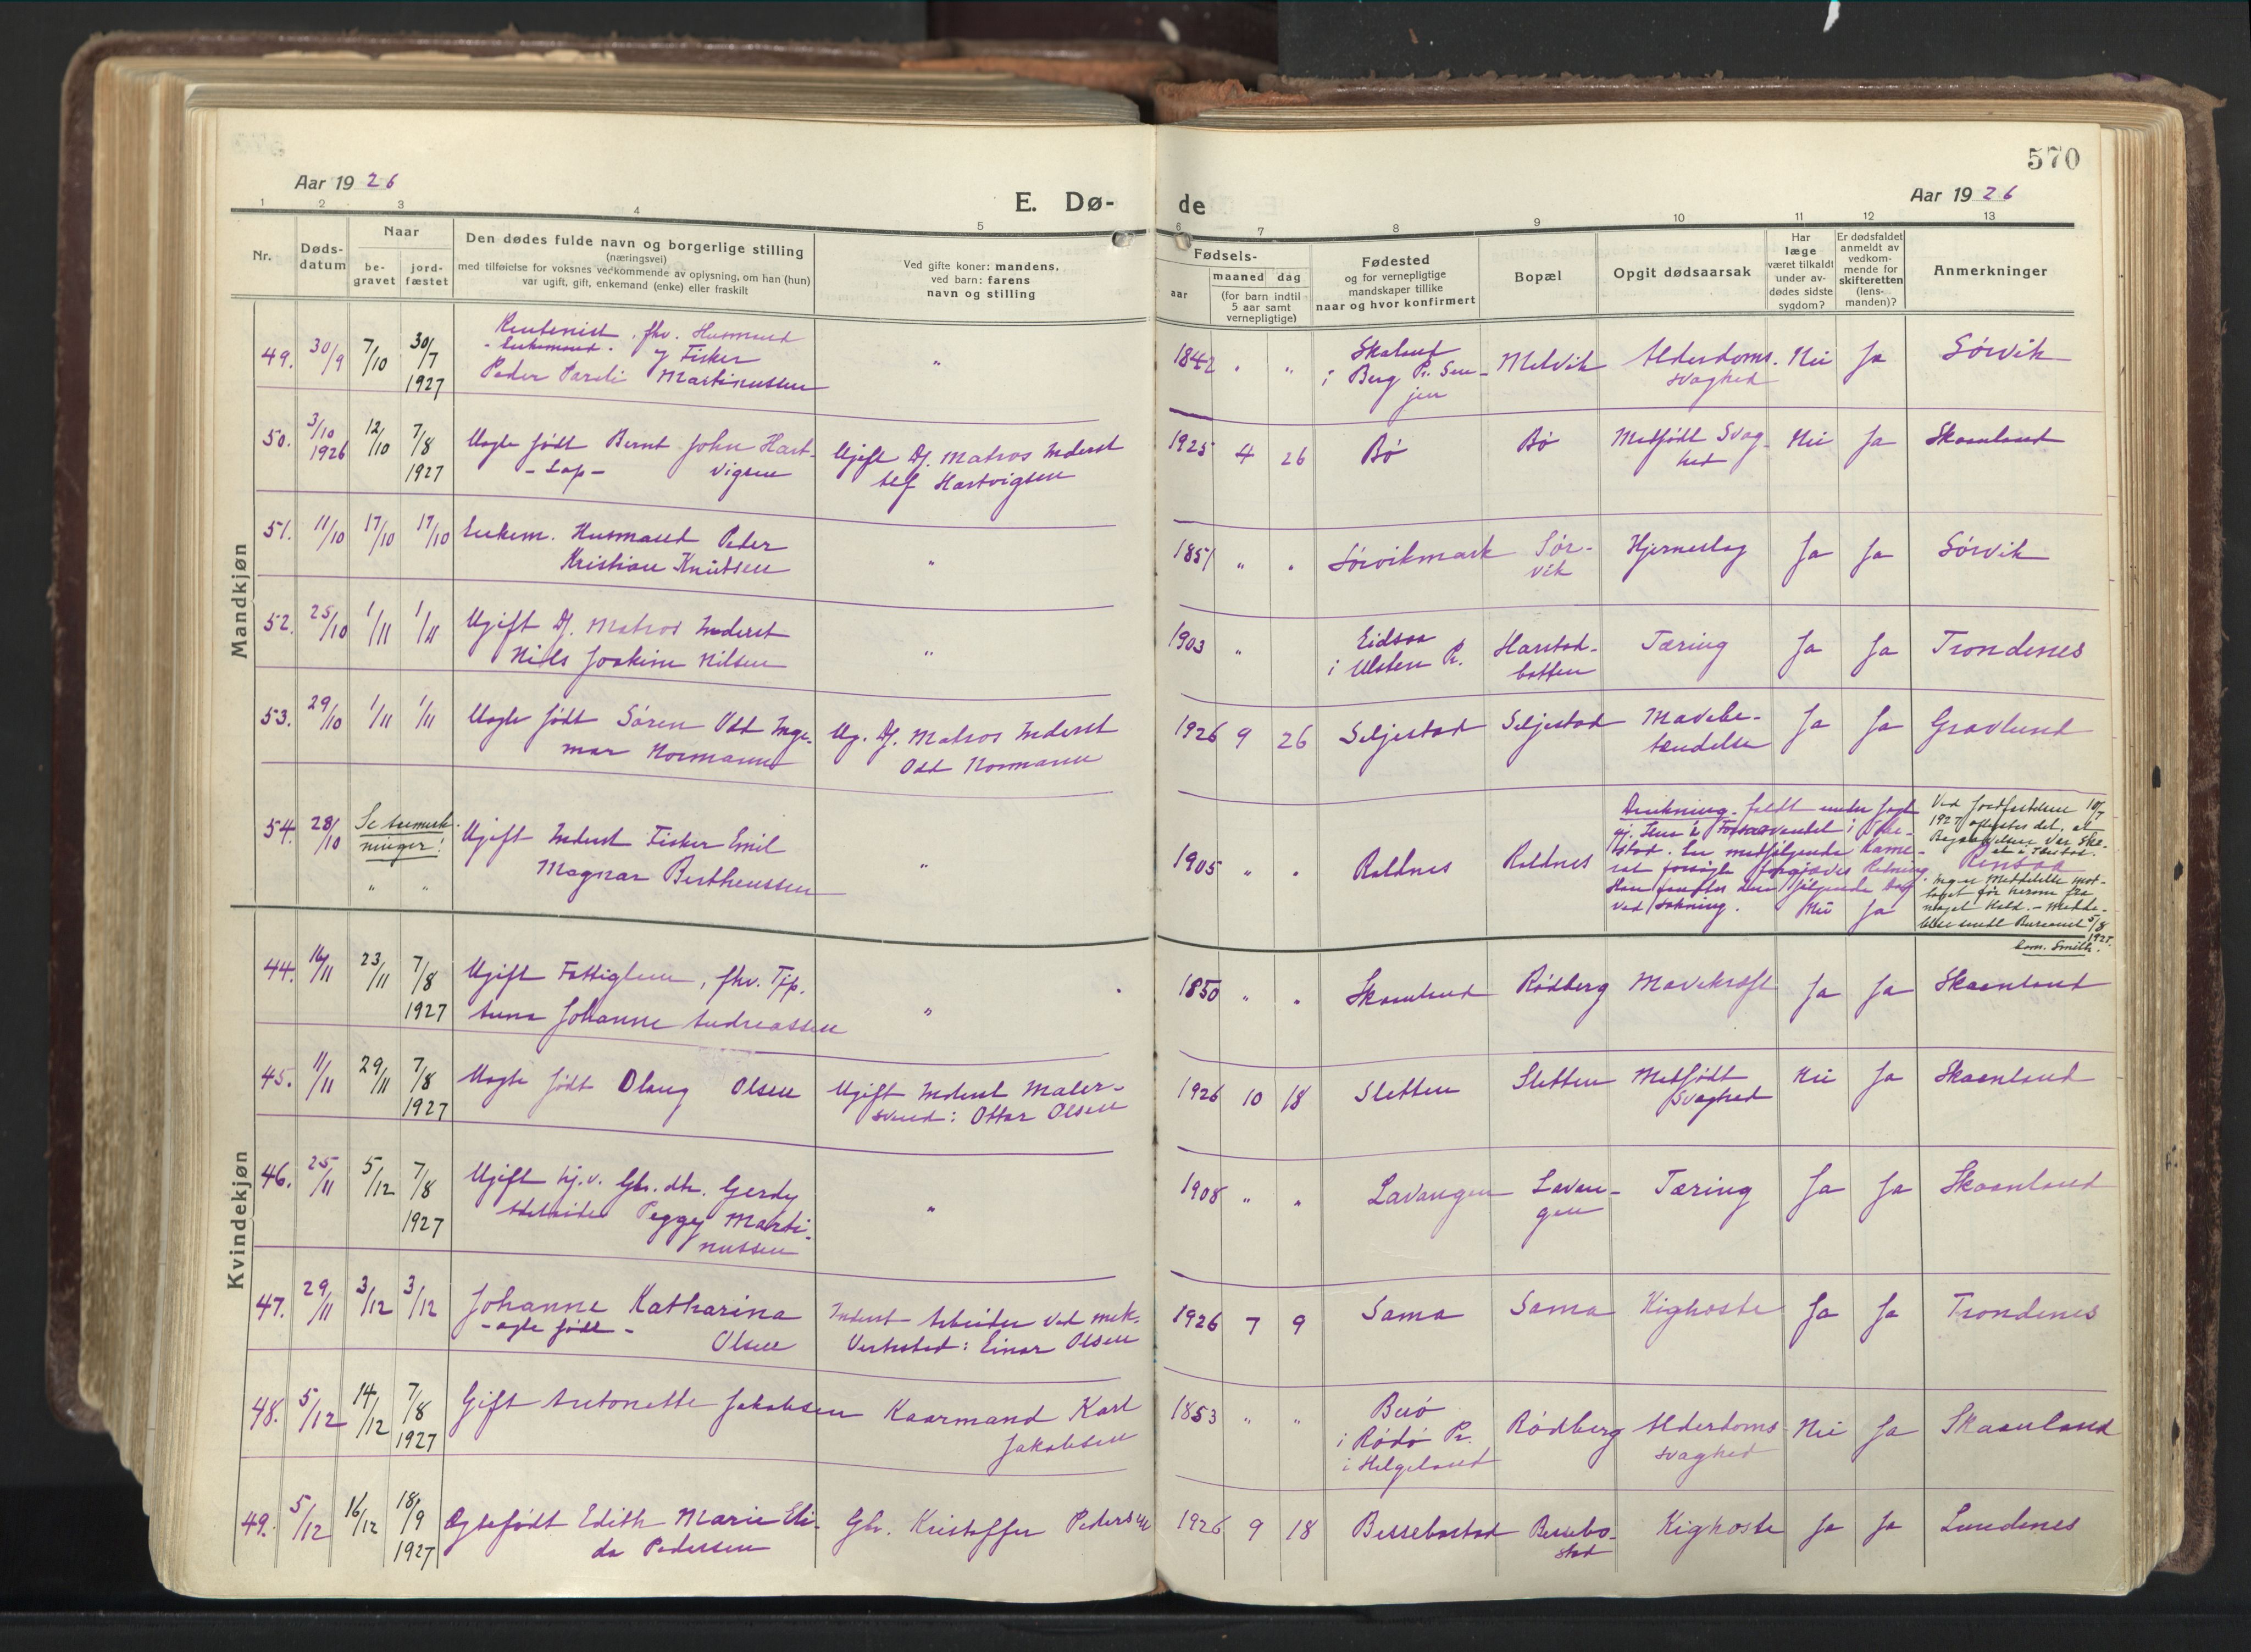 570
Aar 1926
E. Dø-
de
Aar 1926
1 2 3 4 5 6 7 8 9 10 11 12 13
Nr.
Døds-
datum
Naar
be-
gravet
jord-
fæstet
Den dødes fulde navn og borgerlige stilling
(næringsvei)
med tilføielse for voksnes vedkommende av oplysning, om han (hun)
var ugift, gift, enkemand (enke) eller fraskilt
Ved gifte koner: mandens,
ved barn: farens
navn og stilling
Fødsels-
aar
maaned dag
(for barn indtil
5 aar samt
vernepligtige)
Fødested
og for vernepligtige
mandskaper tillike
naar og hvor konfirmert
Bopæl
Opgit dødsaarsak
Har
læge
været tilkaldt
under av-
dødes sidste
sygdom?
Er dødsfaldet
anmeldt av
vedkom-
mende for
skifteretten
(lens-
manden)?
Anmerkninger
Mandkjøn
49. 30/9 7/10 30/7 1927
Rentenist, fhv. Husmand
- Enkemand - og Fisker
Peder Pareli Martinussen
"
1842 " "
Skaland
i Berg Pr. Sen-
jen
Melvik
Alderdoms-
svaghed
Nei Ja Sörvik
50. 3/10 1926 12/10 7/8 1927
Uægte født Bernt John Hart-
- Lap - vigsen
Ugift Df. Matros Inderst
Alf Hartvigsen
1925 4 26 Bø Bø
Medfødt Svag-
hed
Nei Ja Skaanland
51. 11/10 17/10 17/10
Enkem. Husmand Peder
Kristian Knutsen
"
1851 " " Sörvikmark
Sør-
vik
Hjerneslag Ja Ja Sörvik
52. 25/10 1/11 1/11
Ugift Df. Matros Inderst
Nils Joakim Nilsen
"
1903 "
Eidsaa
i Ulsten Pr.
Harstad-
botten
Tæring Ja Ja Trondenes
53. 29/10 1/11 1/11
Uægte født Sören Odd Inge-
mar Normann
Ug. Df. Matros Inderst
Odd Normann
1926 9 26 Seljestad Seljestad
Mavebe-
tændelse
Ja Ja Gravlund
54. 28/10
Se Anmerk-
ninger!
" "
Ugift Inderst Fisker Emil
Magnar Bertheussen
"
1905 " " Roldnes Roldnes
Drukning. faldt under
ved Sokning. Nei Ja
Ved Jordfæstelsen 10/7
1927 oplystes det, at
Begravelsen var Ske-
Rensaa
Ingen Meddelelse mod-
taget før herom fra
noget Hold. - Medde-
lelse sendt Bureauet 5/8
1927.
Kvindekjøn
44. 16/11 23/11 7/8 1927
Ugift Fattiglem, fhv. Tjp.
Anna Johanne Andreassen
"
1850 " " Skaanland Rødberg Mavekræft Ja Ja Skaanland
45. 11/11 29/11 7/8 1927
Uægte født Olaug Olsen
Ugift Inderst Maler-
svend: Ottar Olsen
1926 10 18 Sletten Sletten
Medfødt
Svaghed
Nei Ja Skaanland
46. 25/11 5/12 7/8 1927
Ugift hj.v. Gbr. dtr. Gerdy
Adelaide Peggy Marti-
nussen
"
1908 " " Lavangen
Lavan-
gen
Tæring Ja Ja Skaanland
47. 29/11 3/12 3/12
Johanne Katharina
- ægte født -
Olsen
Inderst Arbeider ved mek.
Verksted: Einar Olsen
1926 7 9 Sama Sama Kighoste Ja Ja Trondenes
48. 5/12 14/12 7/8 1927
Gift Antonette Jakobsen
Kaarmand Karl
Jakobsen
1853 " "
i Rødø Pr.
i Helgeland
Rødberg
Alderdoms
svaghed
Nei Ja Skaanland
49. 5/12 16/12 18/9 1927
Ægtefødt Edith Marie Eli-
da Pedersen
Gbr. Kristoffer Pedersen
1926 9 18 Bessebostad
Bessebo-
stad
Kighoste Ja Ja Lundenes